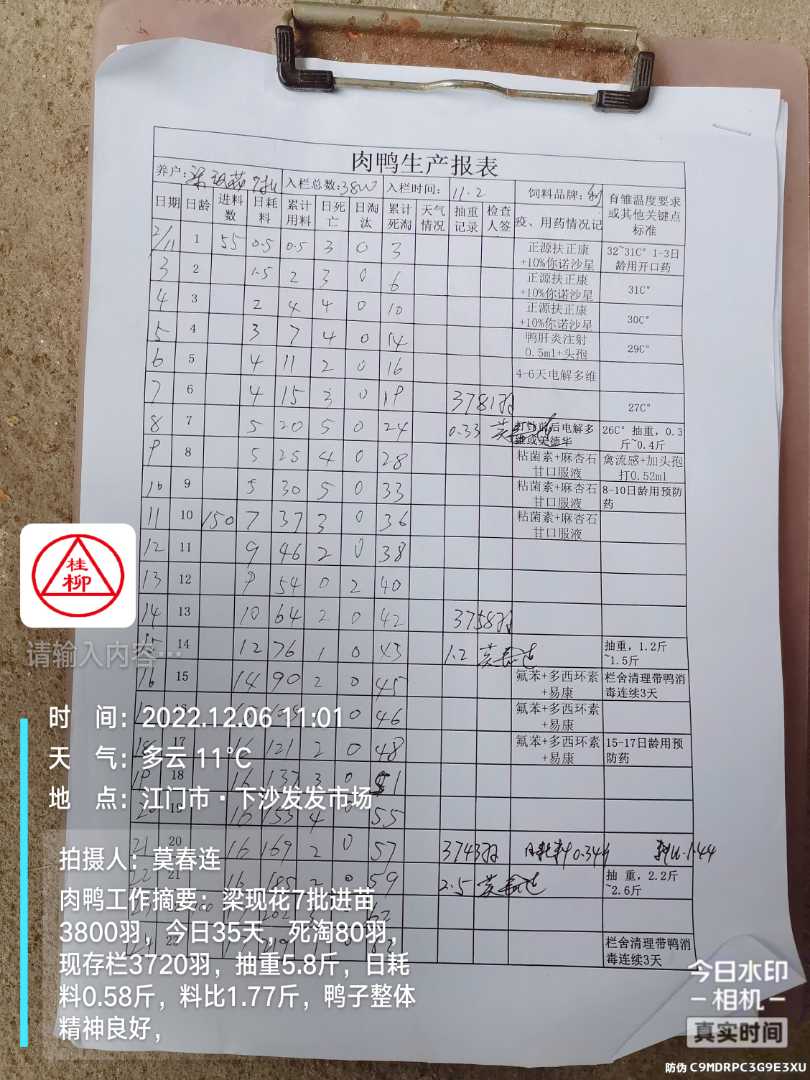 肉鸭生产报表
养户: 梁现花 7批 入栏总数:3800 入栏时间: 11.2 饲料品牌:
日期 日龄 进料数 日耗料 累计用料 日死亡 日淘汰 累计死淘 天气情况 抽重记录 检查人签 疫、用药情况记 育雏温度要求或其他关键点标准
2/11 1 55 0.5 0.5 3 0 3 正源扶正康+10%你诺沙星 32~31C° 1-3日龄用开口药
3 2 1.5 2 3 0 6 正源扶正康+10%你诺沙星 31C°
4 3 2 4 4 0 10 正源扶正康+10%你诺沙星 30C°
5 4 3 7 4 0 14 鸭肝炎注射0.5ml+头孢 29C°
6 5 4 11 2 0 16 4-6天电解多维
7 6 4 15 3 0 19 3781羽 27C°
8 7 5 20 5 0 24 0.33 26C° 抽重，0.3斤~0.4斤
9 8 5 25 4 0 28 粘菌素+麻杏石甘口服液 禽流感+加头孢打0.52ml
10 9 5 30 5 0 33 粘菌素+麻杏石甘口服液 8-10日龄用预防药
11 10 150 7 37 3 0 36 粘菌素+麻杏石甘口服液
12 11 9 46 2 0 38
13 12 9 54 0 2 40
14 13 10 64 2 0 42 3758羽
15 14 12 76 1 0 43 1.2 莫春连 抽重，1.2斤~1.5斤
16 15 14 90 2 0 45 氟苯+多西环素+易康 栏舍清理带鸭消毒连续3天
0 46 氟苯+多西环素+易康
17 16 121 2 0 48 氟苯+多西环素+易康 15-17日龄用预防药
19 18 16 137 3 0 51
19 16 153 4 0 55
21 20 16 169 2 0 57 3743羽 日耗料0.34斤 料比1.44
21 16 185 2 0 59 2.5 莫春连 抽 重，2.2斤~2.6斤
栏舍清理带鸭消毒连续3天
桂柳
请输入内容…
时 间：2022.12.06 11:01
天 气：多云 11℃
地 点：江门市·下沙发发市场
拍摄人：莫春连
肉鸭工作摘要：梁现花7批进苗
3800羽，今日35天，死淘80羽，
现存栏3720羽，抽重5.8斤，日耗
料0.58斤，料比1.77斤，鸭子整体
精神良好，
今日水印
-相机-
真实时间
防伪 C9MDRPC3G9E3XU